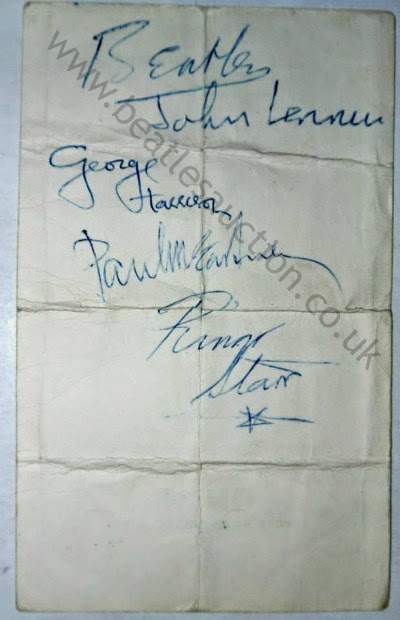 Beatles
John Lennon
George
Harrison
Paul McCartney
Ringo
Starr
www.beatlesauction.co.uk